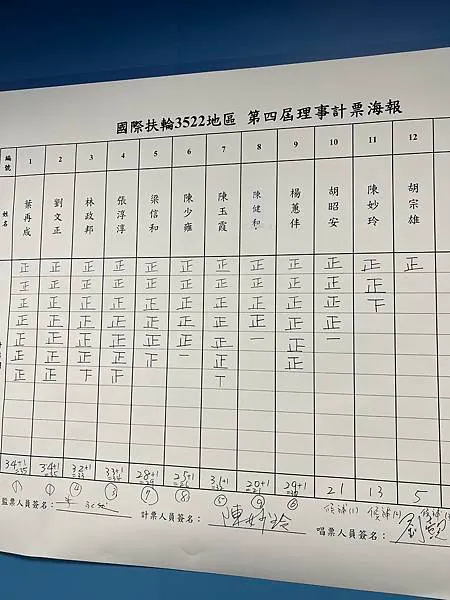 國際扶輪3522地區 第四屆理事計票海報
編號 1 2 3 4 5 6 7 8 9 10 11 12
姓名 葉再成 劉文正 林政邦 張淳淳 梁信和 陳少雍 陳玉霞 陳健和 楊蕙伴 胡昭安 陳妙玲 胡宗雄
正 正 正 正 正 正 正 正 正 正 正 正
正 正 正 正 正 正 正 正 正 正 正
正 正 正 正 正 正 正 正 正 正 下
正 正 正 正 正 正 正 正 正 正
正 正 正 正 正 正 正 一 正 一
正 正 正 正 下 一 正 正
正 正 下 正 丅
34+1 34+1 32+1 33+1 28+1 25+1 31+1 20+1 29+1 21 13 5
=35 =35 =33 =34
① ① ④ ③ ⑦ ⑧ ⑤ ⑨ ⑥ 候補(1) 候補(2)
監票人員簽名: 計票人員簽名: 陳妙玲 唱票人員簽名: 劉